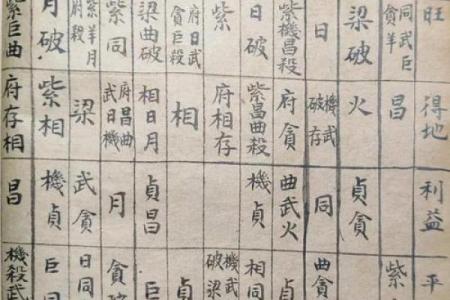 旺
得地
利益
平
同武巨
貪羊
昌
紫
梁破
火
貞貪
日
機武
破存
同
曲貪
紫機昌殺
府貪
曲武火
貞
日破
紫昌曲殺
機貞
相同
紫
府相存
機武
破梁
府日武
貪巨殺
相
貞
梁曲破
相日月
貞昌
巨
紫同
府昌曲
武日機
月
貪破
紫羊月
府殺
梁
武貪
日同
月破
紫相
機貞
巨同
紫巨曲
府存相
昌
機殺武